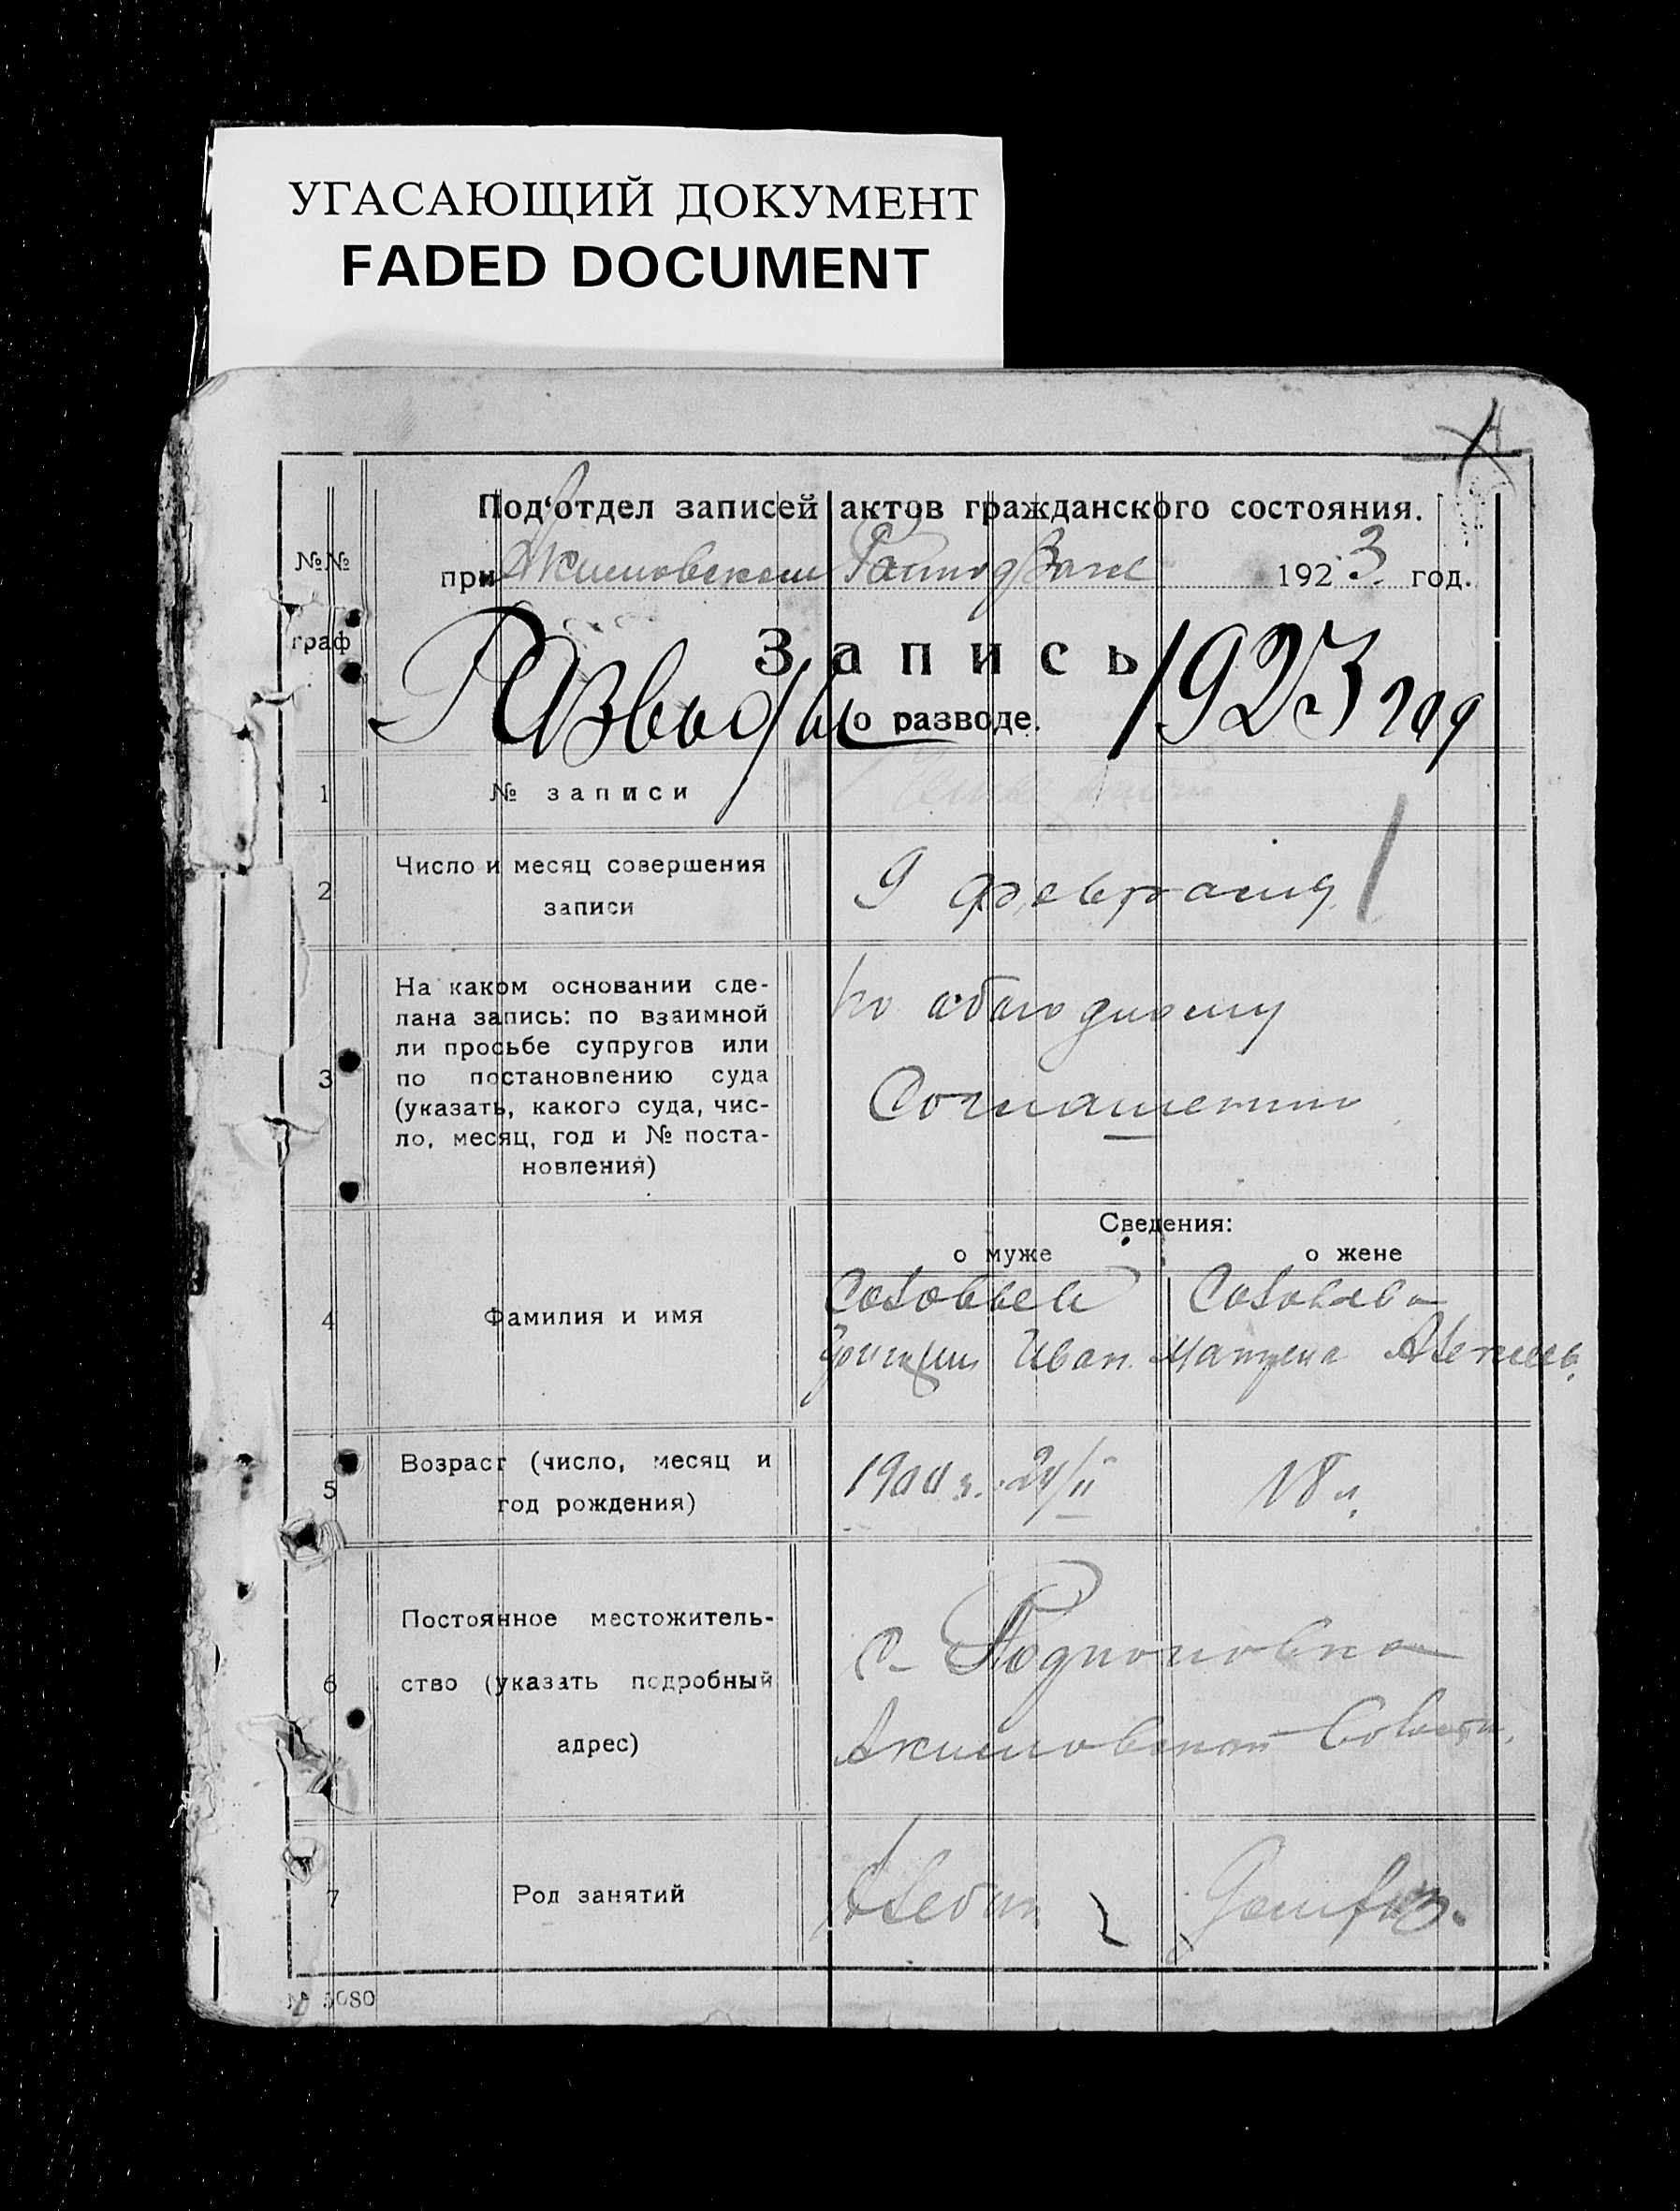 УГАСАЮЩИЙ ДОКУМЕНТ
FADED DOCUMENT
Под‘отдел записей актов гражданского состояния.
№№ граф
при Акимовском 1923 год.
Запись
о разводе.
Разводы 1923 год
1 № записи
2 Число и месяц совершения
записи
9 февраля
3 На каком основании сде-
лана запись: по взаимной
ли просьбе супругов или
по постановлению суда
(указать, какого суда, чис-
ло, месяц, год и № поста-
новления)
по обоюдному
Соглашению
Сведения:
о муже о жене
4 Фамилия и имя
Соловьев Соловьева
Иван.
5 Возраст (число, месяц и
год рождения)
18 л.
6 Постоянное местожитель-
ство (указать подробный
адрес)
с. Родионовка
Акимовской
7 Род занятий
№ 5080